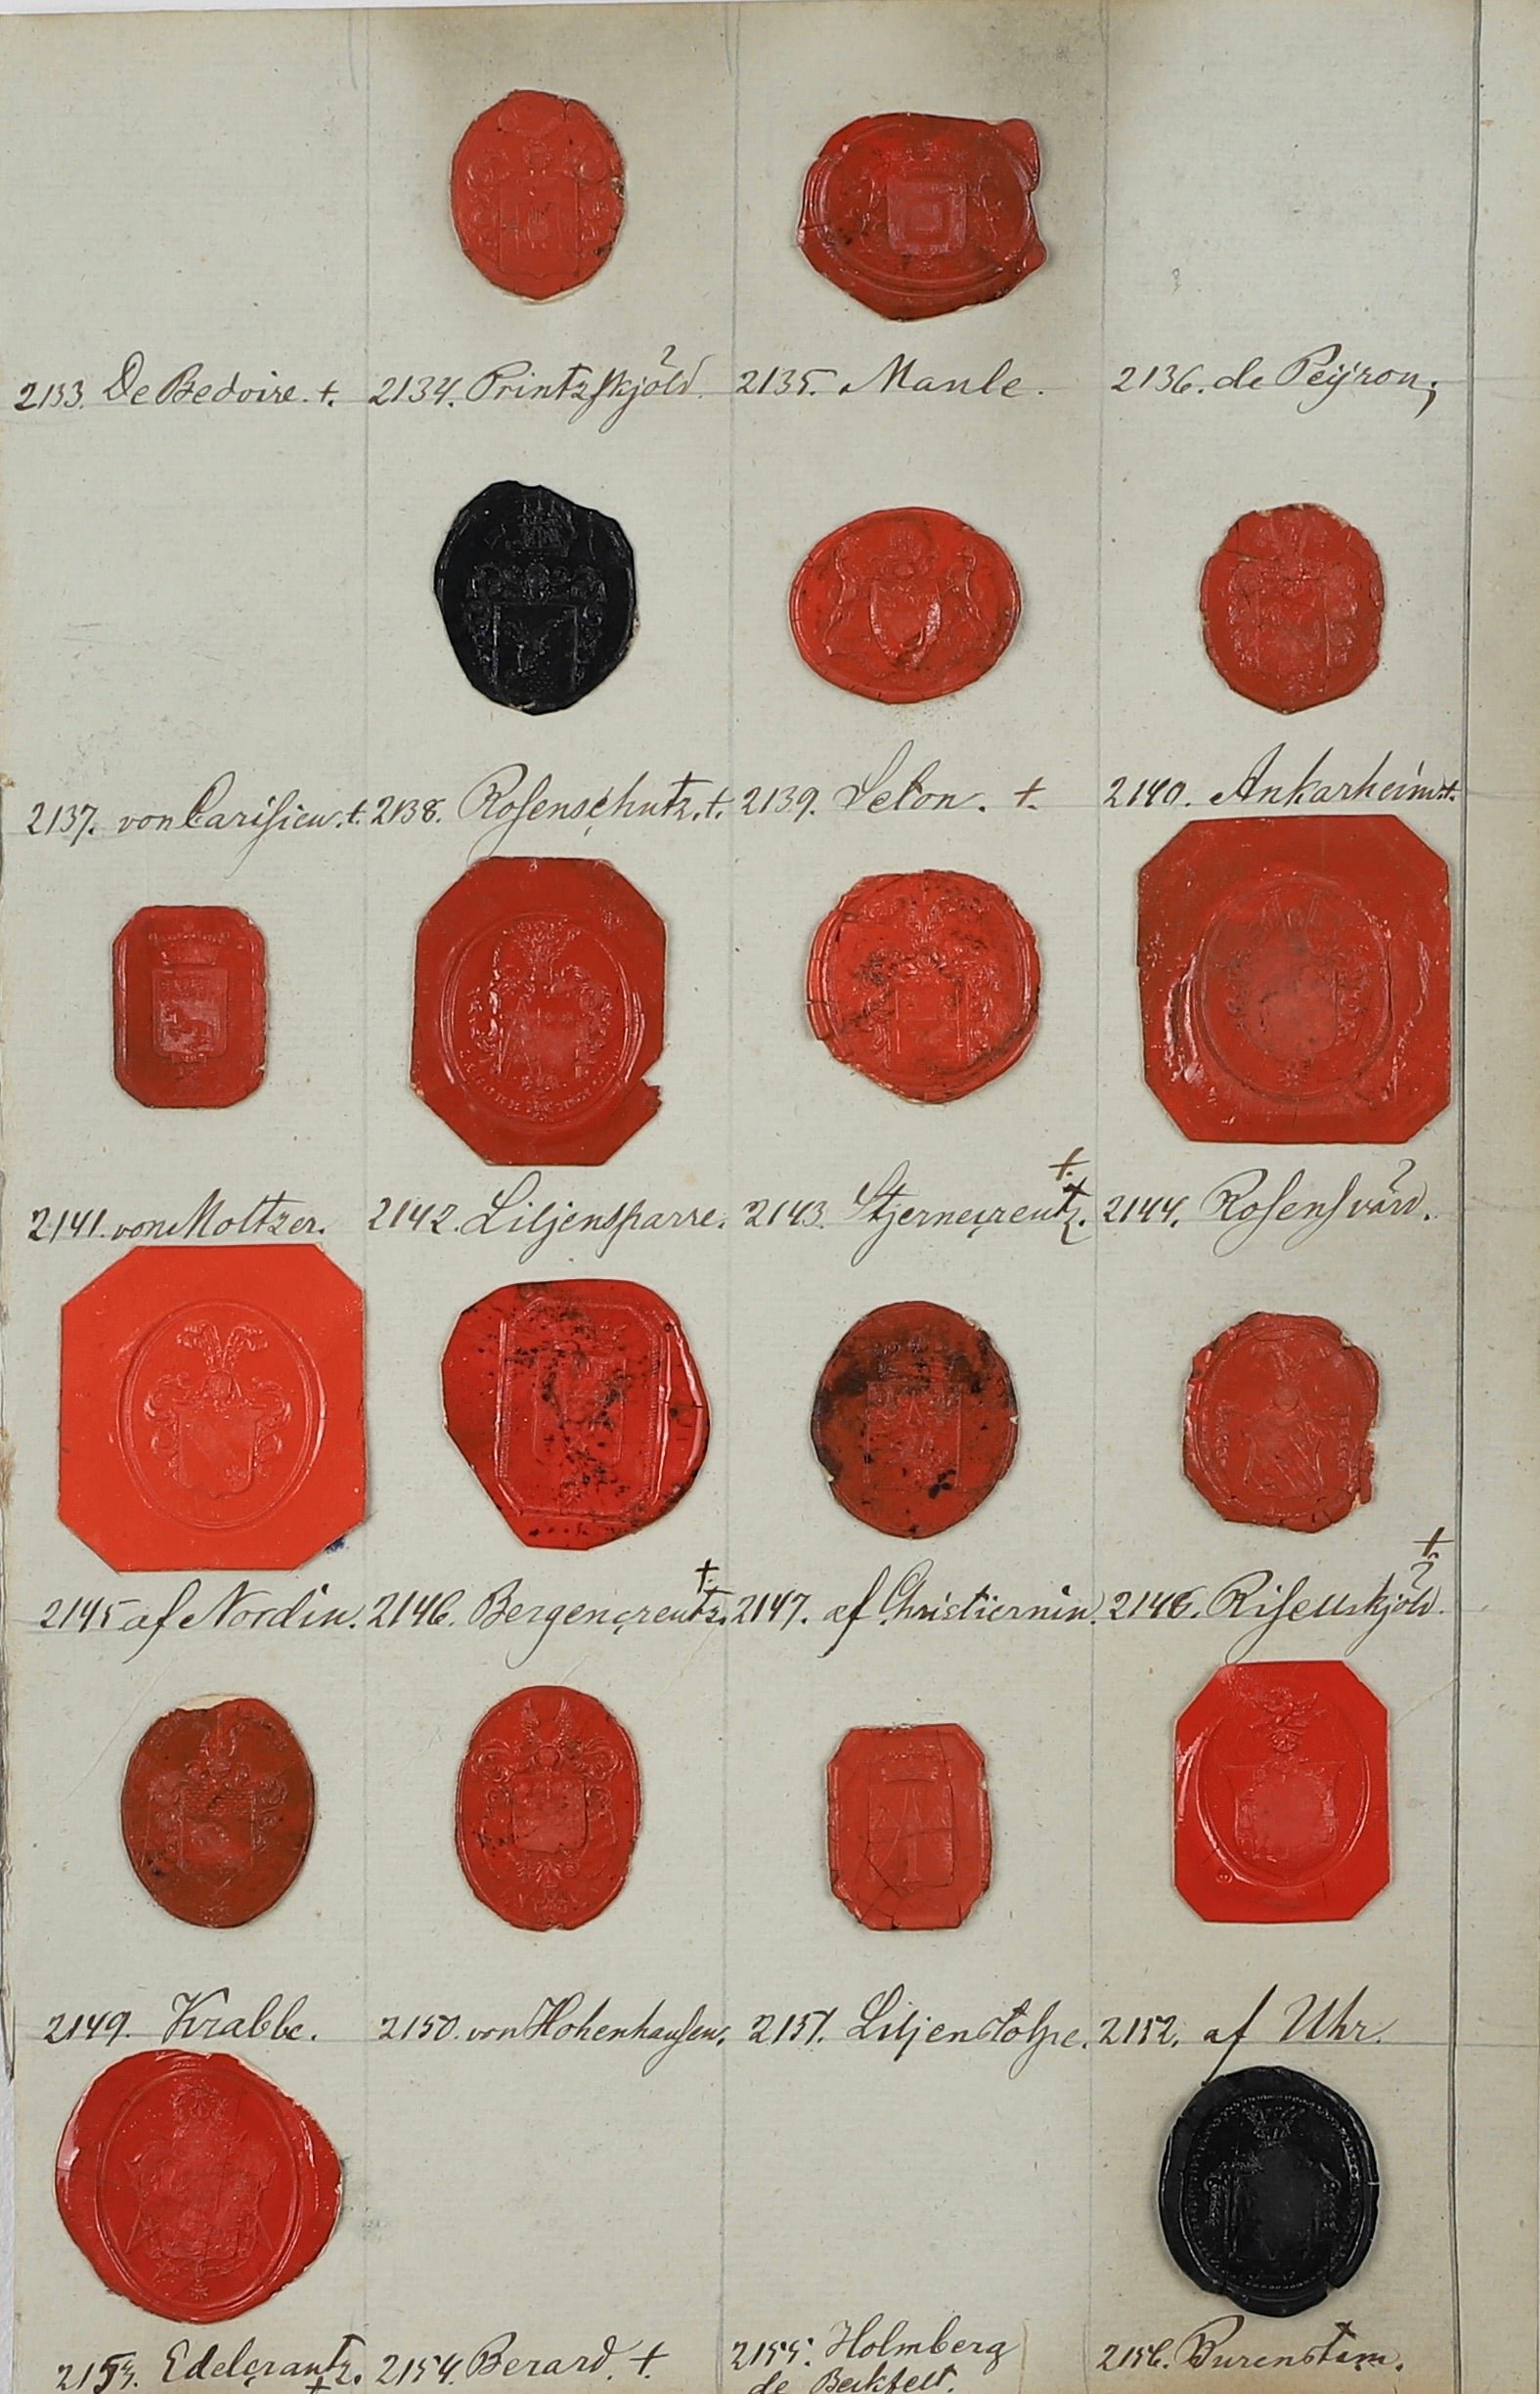 2133. De Bedoire. †. 2134. Printzskjöld. 2135. Maule. 2136. de Peÿron;
2137. von Carisien. †. 2138. Rosenschutz. †. 2139. Seton. †. 2140. Ankarheim †.
2141. von Moltzer. 2142. Liljensparre. 2143. Stjerncreutz. †. 2144. Rosensvärd.
2145 af Nordin. 2146. Bergencreutz. †. 2147. af Christiernin. 2148. Risellskjöld. †.
2149. Krabbe. 2150. von Hohenhausen. 2151. Liljenstolpe. 2152. af Uhr.
2153. Edelcrantz. † 2154. Berard. †. 2155. Holmberg 2156. Burenstam.
de Beckfelt.